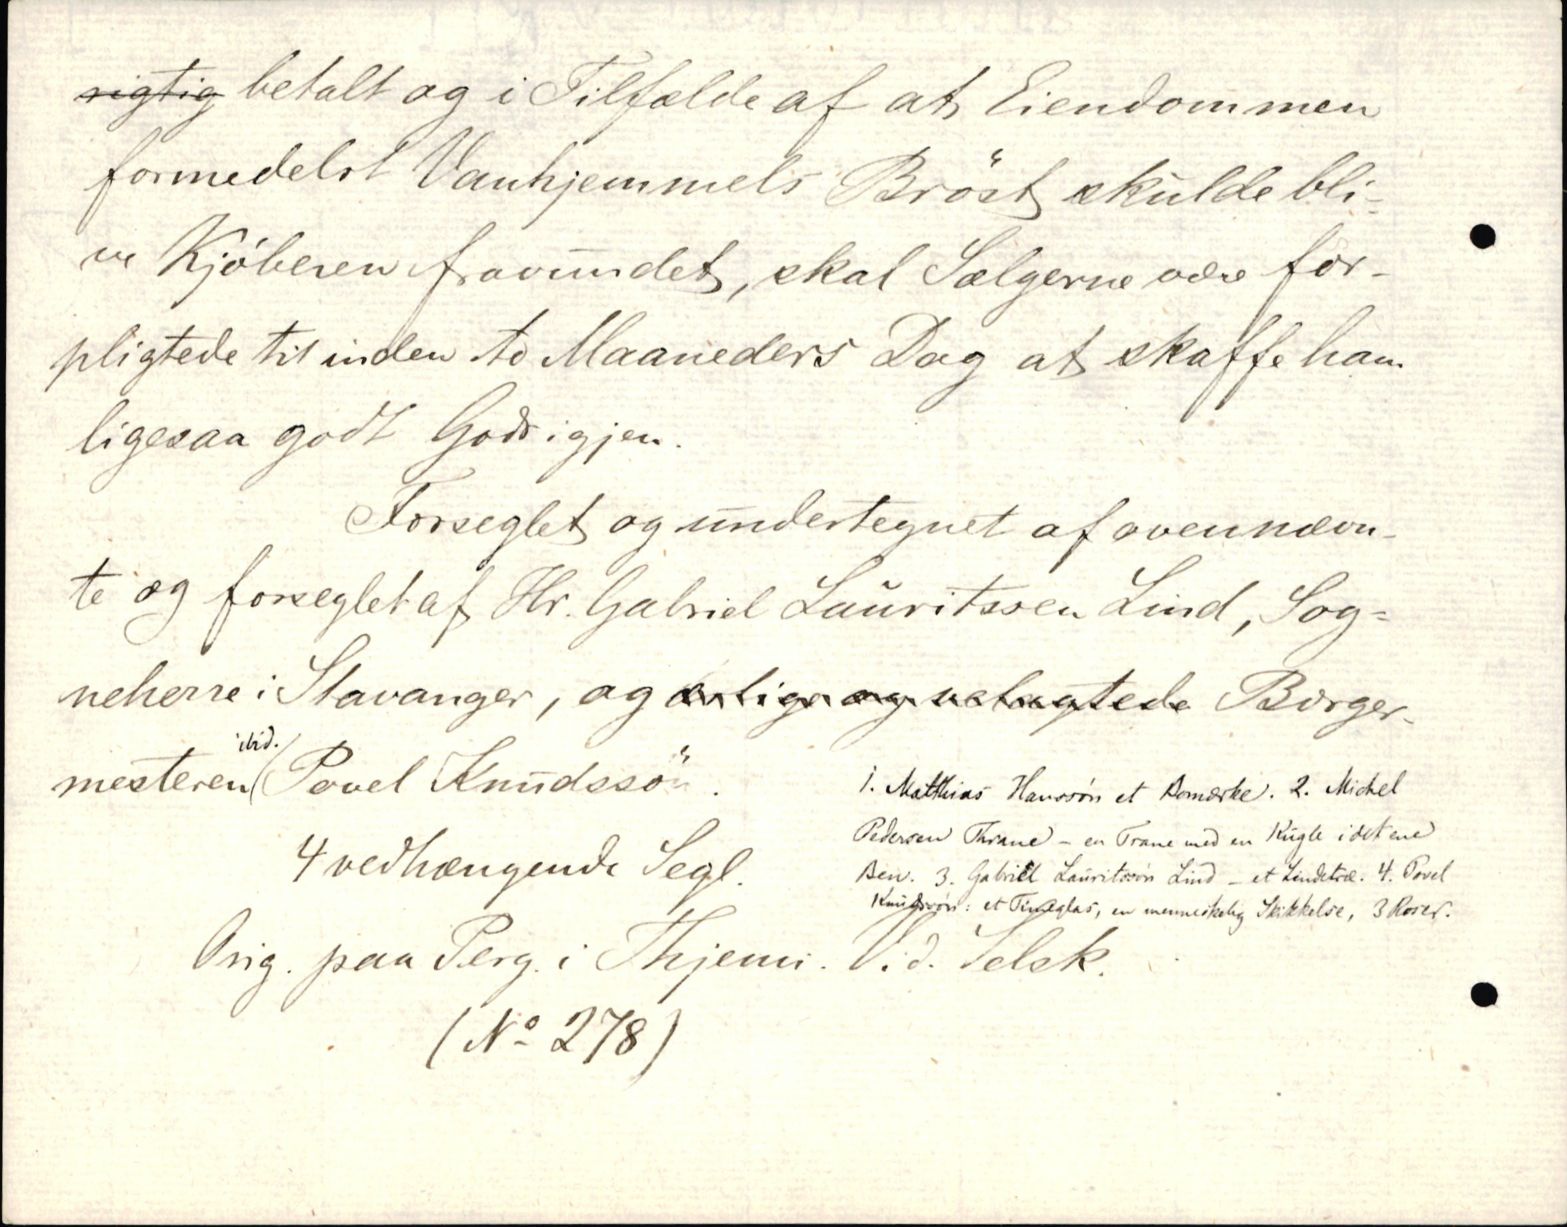 rigtig betalt og i Tilfælde af at Eiendommen
formedelst Vanhjemmels Bröst skulde bli-
ve Kjøberen fravundet, skal Sælgerne være for-
pligtede til inden to Maaneders Dag at skaffe ham
ligesaa godt Gods igjen.
Forseglet og undertegnet af ovennævn-
te og forseglet af Hr. Gabriel Lauritssen Lind, Sog-
neherre i Stavanger, og ærlige og velagtede Borger-
mesteren ibid. Povel Knudssön.
4 vedhængende Segl.
1. Matthias Hanssøn et Bomærke. 2. Michel
Pedersen Thrane – en Trane med en Kugle i det ene
Ben. 3. Gabriel Lauritssøn Lind – et Lindetræ. 4. Povel
Knudssøn: et Timeglas, en menneskelig Skikkelse, 3 Roser.
Orig. paa Perg. i Thjems. Vid. Selsk.
(No 278)